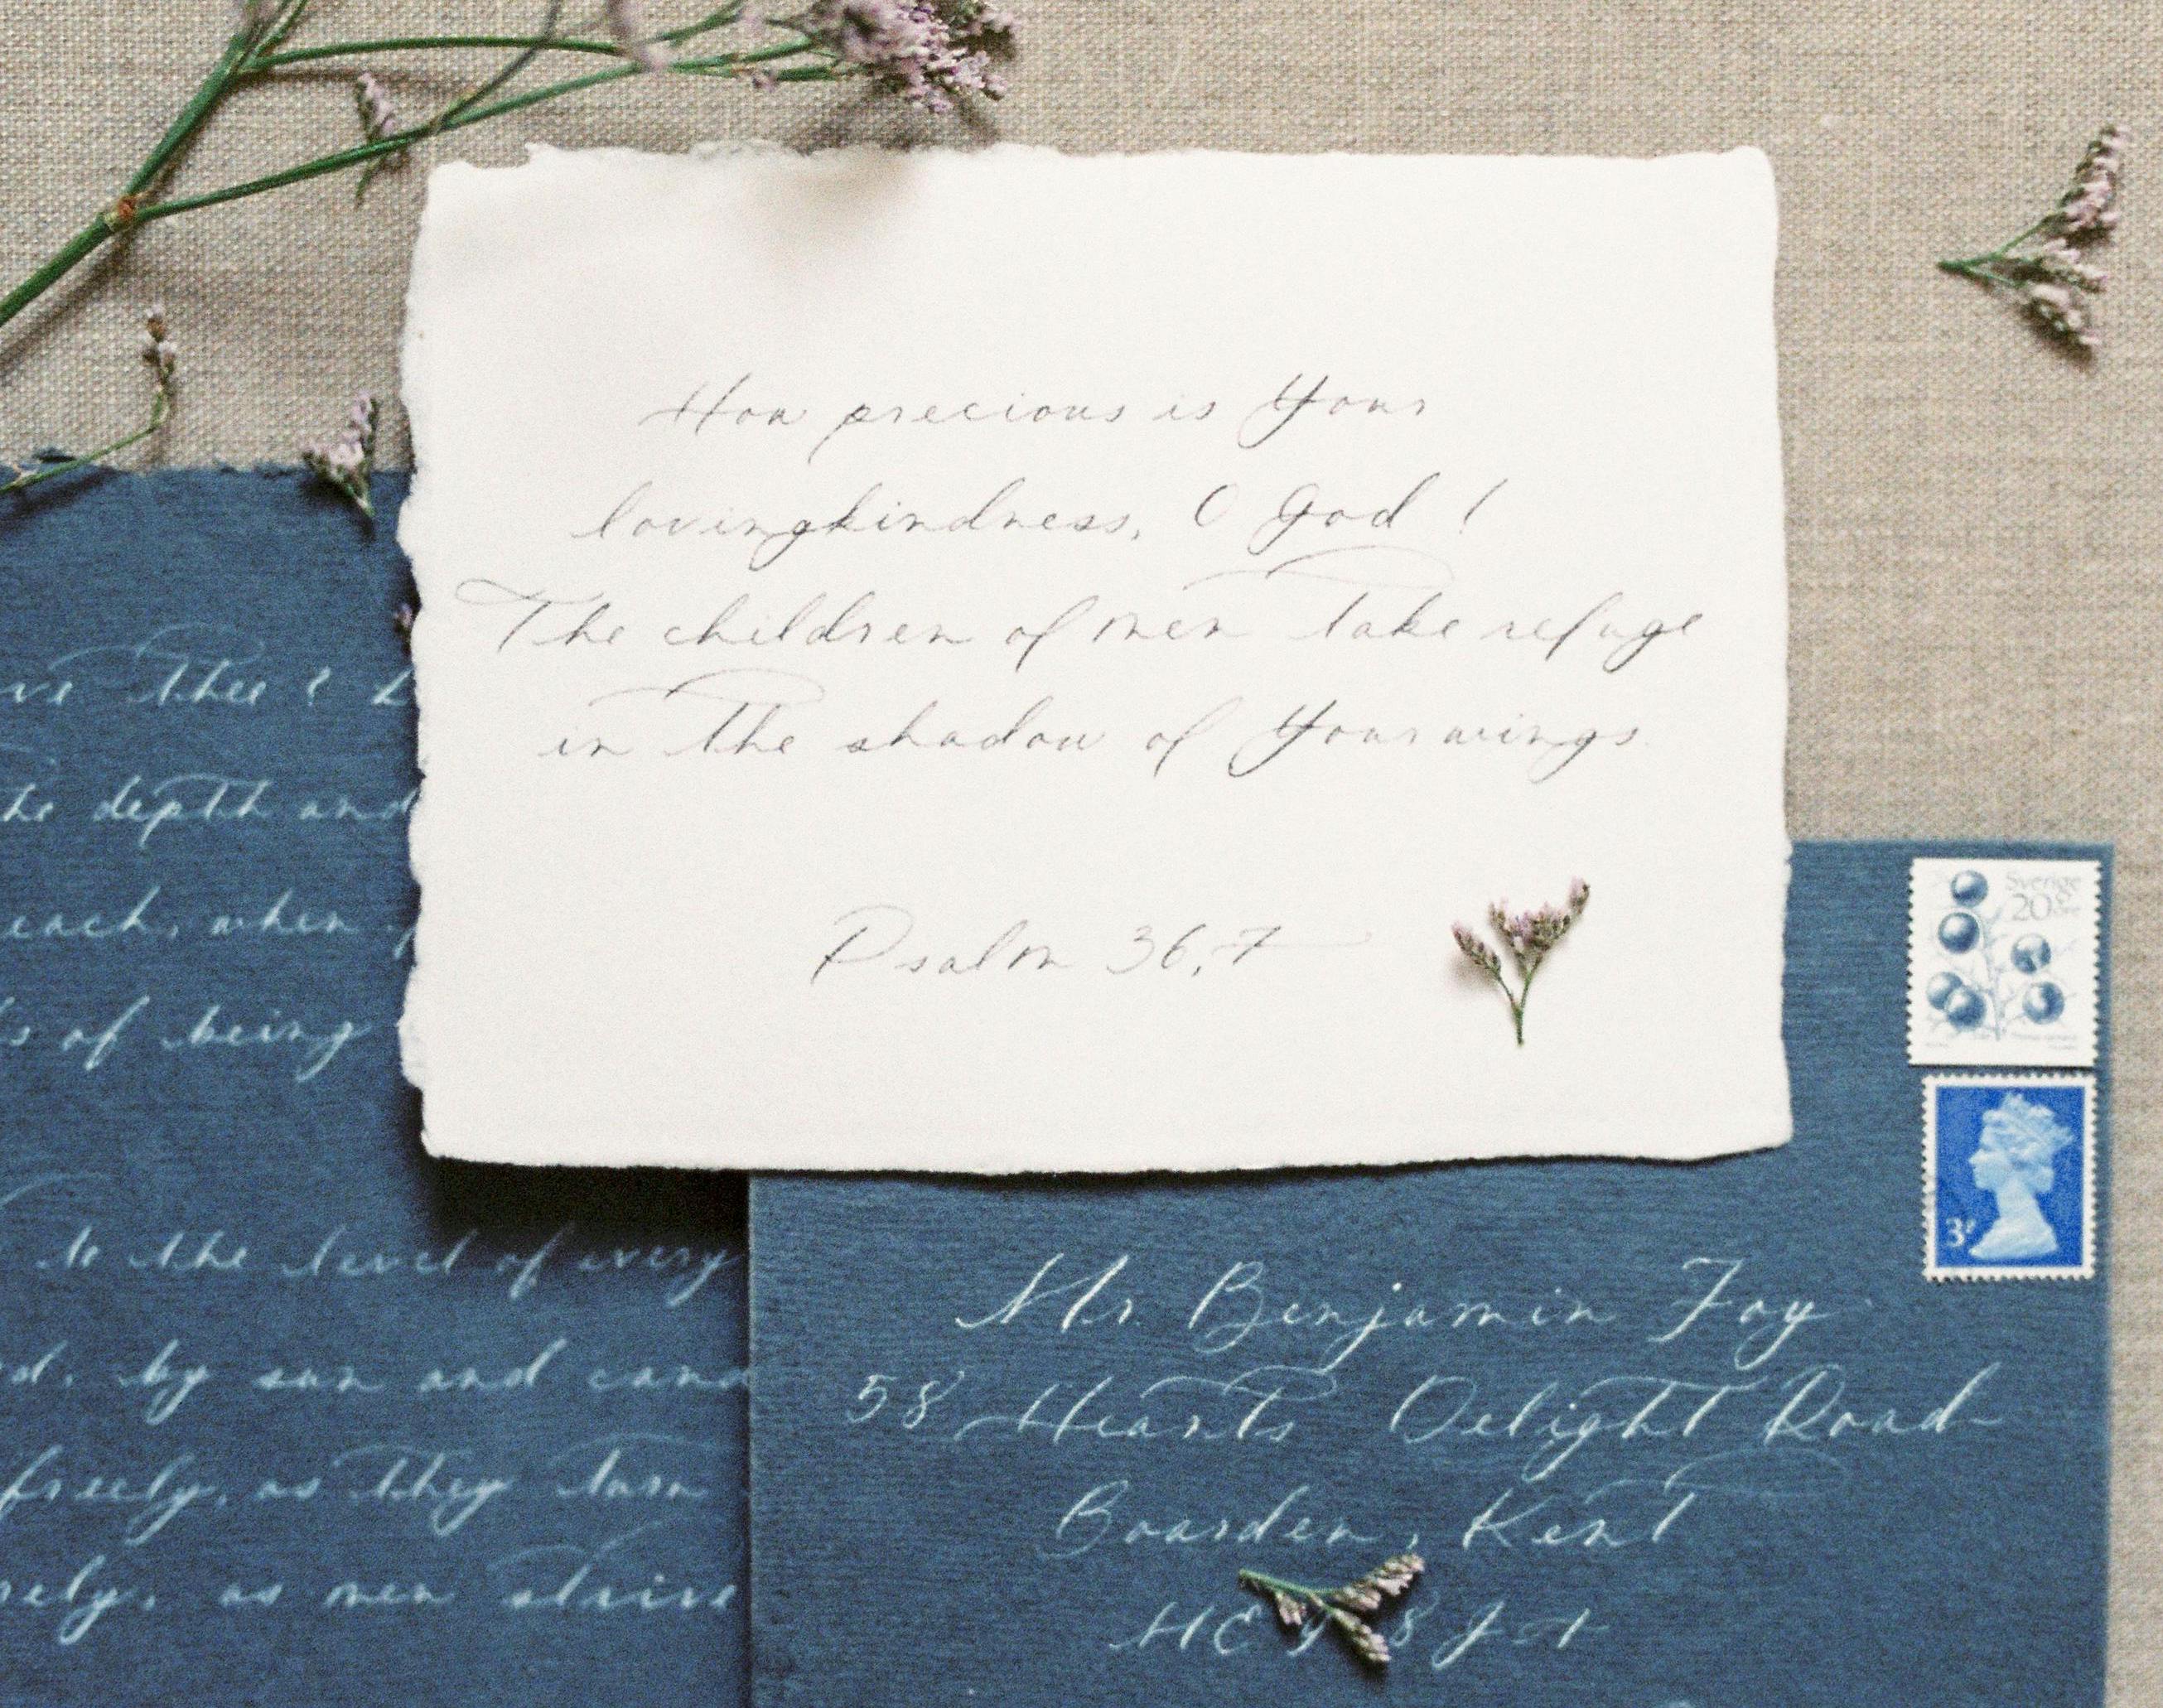 How precious is Your
lovingkindness, O God!
The children of men take refuge
in the shadow of Your wings.
Psalm 36,7
thee?
depth and
each, when
of being
to the level of every
by sun and
freely, as they turn
as men strive
Sverige
20 öre
3P
Mr. Benjamin Foy
58 Hearts Delight Road
Boarden, Kent
8JA